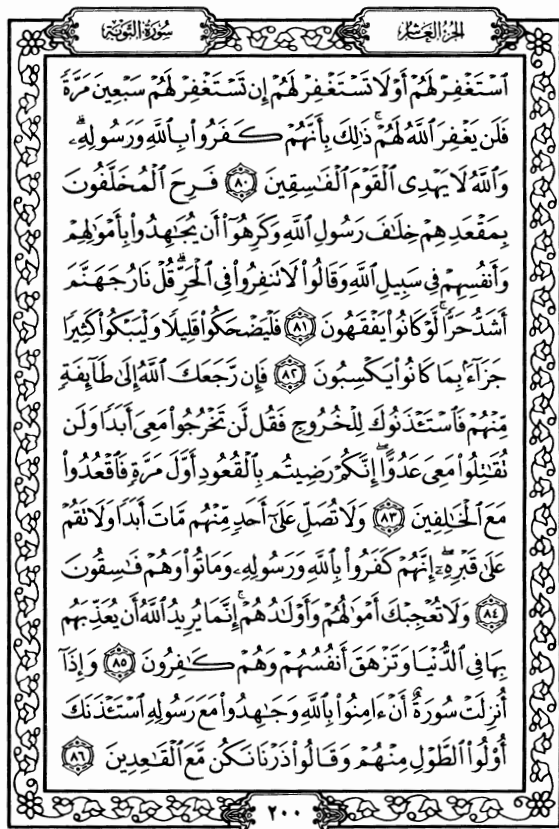 سُورَةُ التَّوْبَةِ
الجُزءُ العَاشِرُ
ٱسْتَغْفِرْ لَهُمْ أَوْ لَا تَسْتَغْفِرْ لَهُمْ إِن تَسْتَغْفِرْ لَهُمْ سَبْعِينَ مَرَّةً
فَلَن يَغْفِرَ ٱللَّهُ لَهُمْ ۚ ذَٰلِكَ بِأَنَّهُمْ كَفَرُوا۟ بِٱللَّهِ وَرَسُولِهِۦ ۗ
وَٱللَّهُ لَا يَهْدِى ٱلْقَوْمَ ٱلْفَـٰسِقِينَ ٨٠ فَرِحَ ٱلْمُخَلَّفُونَ
بِمَقْعَدِهِمْ خِلَـٰفَ رَسُولِ ٱللَّهِ وَكَرِهُوٓا۟ أَن يُجَـٰهِدُوا۟ بِأَمْوَٰلِهِمْ
وَأَنفُسِهِمْ فِى سَبِيلِ ٱللَّهِ وَقَالُوا۟ لَا تَنفِرُوا۟ فِى ٱلْحَرِّ ۗ قُلْ نَارُ جَهَنَّمَ
أَشَدُّ حَرًّا ۚ لَّوْ كَانُوا۟ يَفْقَهُونَ ٨١ فَلْيَضْحَكُوا۟ قَلِيلًا وَلْيَبْكُوا۟ كَثِيرًا
جَزَآءًۢ بِمَا كَانُوا۟ يَكْسِبُونَ ٨٢ فَإِن رَّجَعَكَ ٱللَّهُ إِلَىٰ طَآئِفَةٍ
مِّنْهُمْ فَٱسْتَـْٔذَنُوكَ لِلْخُرُوجِ فَقُل لَّن تَخْرُجُوا۟ مَعِىَ أَبَدًا وَلَن
تُقَـٰتِلُوا۟ مَعِىَ عَدُوًّا ۖ إِنَّكُمْ رَضِيتُم بِٱلْقُعُودِ أَوَّلَ مَرَّةٍ فَٱقْعُدُوا۟
مَعَ ٱلْخَـٰلِفِينَ ٨٣ وَلَا تُصَلِّ عَلَىٰٓ أَحَدٍ مِّنْهُم مَّاتَ أَبَدًا وَلَا تَقُمْ
عَلَىٰ قَبْرِهِۦٓ ۖ إِنَّهُمْ كَفَرُوا۟ بِٱللَّهِ وَرَسُولِهِۦ وَمَاتُوا۟ وَهُمْ فَـٰسِقُونَ
٨٤ وَلَا تُعْجِبْكَ أَمْوَٰلُهُمْ وَأَوْلَـٰدُهُمْ ۚ إِنَّمَا يُرِيدُ ٱللَّهُ أَن يُعَذِّبَهُم
بِهَا فِى ٱلدُّنْيَا وَتَزْهَقَ أَنفُسُهُمْ وَهُمْ كَـٰفِرُونَ ٨٥ وَإِذَآ
أُنزِلَتْ سُورَةٌ أَنْ ءَامِنُوا۟ بِٱللَّهِ وَجَـٰهِدُوا۟ مَعَ رَسُولِهِ ٱسْتَـْٔذَنَكَ
أُو۟لُوا۟ ٱلطَّوْلِ مِنْهُمْ وَقَالُوا۟ ذَرْنَا نَكُن مَّعَ ٱلْقَـٰعِدِينَ ٨٦
٢٠٠